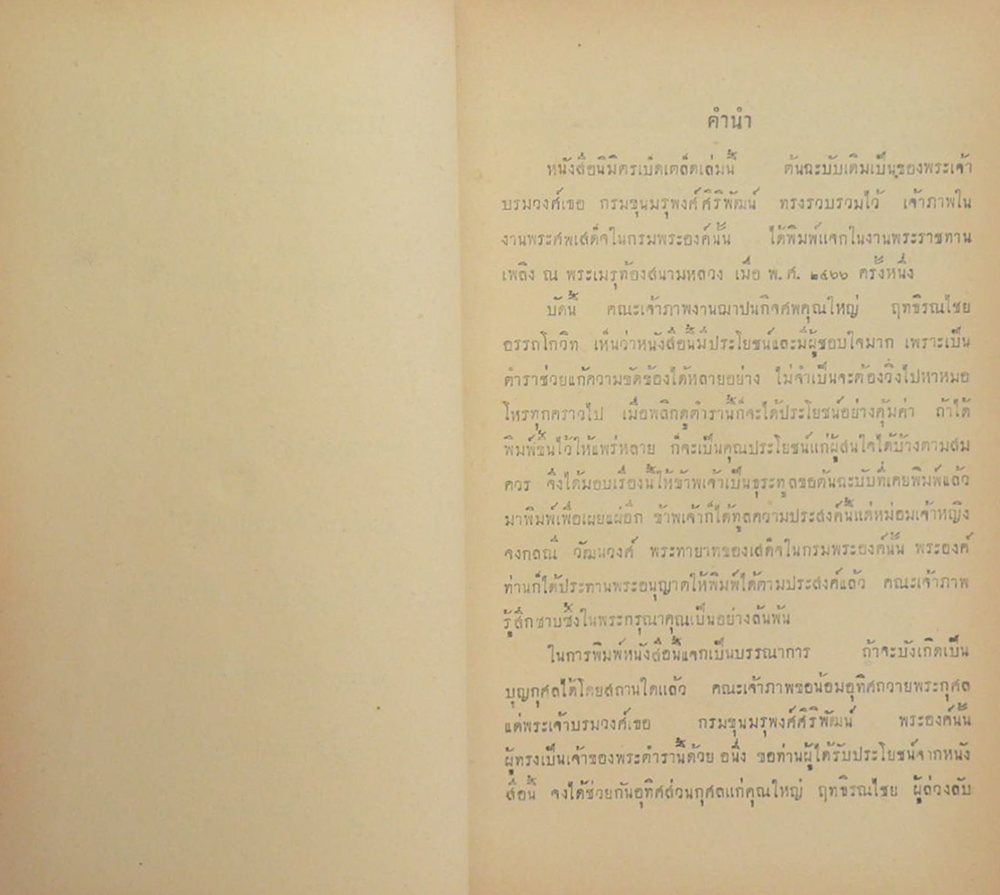 คำนำ
หนังสือนิมิตรเบ็ดเตล็ดเล่มนี้ ต้นฉะบับเดิมเป็นของพระเจ้า
บรมวงศ์เธอ กรมขุนมรุพงศ์ศิริพัฒน์ ทรงรวบรวมไว้ เจ้าภาพใน
งานพระศพเสด็จในกรมพระองค์นั้น ได้พิมพ์แจกในงานพระราชทาน
เพลิง ณ พระเมรุท้องสนามหลวง เมื่อ พ.ศ. ๒๔๖๖ ครั้งหนึ่ง
บัดนี้ คณะเจ้าภาพงานฌาปนกิจศพคุณใหญ่ ฤทธิรณไชย
อรรถโกวิท เห็นว่าหนังสือนี้มีประโยชน์และมีผู้ชอบใจมาก เพราะเป็น
ตำราช่วยแก้ความขัดข้องได้หลายอย่าง ไม่จำเป็นจะต้องวิ่งไปหาหมอ
โหรทุกคราวไป เมื่อพลิกดูตำรานี้ก็จะได้ประโยชน์อย่างคุ้มค่า ถ้าได้
พิมพ์ขึ้นไว้ให้แพร่หลาย ก็จะเป็นคุณประโยชน์แก่ผู้สนใจได้บ้างตามสม
ควร จึ่งได้มอบเรื่องนี้ให้ข้าพเจ้าเป็นธุระทูลขอต้นฉะบับที่เคยพิมพ์แล้ว
มาพิมพ์เพื่อเผยแผ่อีก ข้าพเจ้าก็ได้ทูลความประสงค์นี้แด่หม่อมเจ้าหญิง
จงกลณี วัฒนวงศ์ พระทายาทของเสด็จในกรมพระองค์นั้น พระองค์
ท่านก็ได้ประทานพระอนุญาตให้พิมพ์ได้ตามประสงค์แล้ว คณะเจ้าภาพ
รู้สึกซาบซึ้งในพระกรุณาคุณเป็นอย่างล้นพ้น
ในการพิมพ์หนังสือนี้แจกเป็นบรรณาการ ถ้าจะบังเกิดเป็น
บุญกุศลได้โดยสถานใดแล้ว คณะเจ้าภาพขอน้อมอุทิศถวายพระกุศล
แด่พระเจ้าบรมวงศ์เธอ กรมขุนมรุพงศ์ศิริพัฒน์ พระองค์นั้น
ผู้ทรงเป็นเจ้าของพระตำรานี้ด้วย อนึ่ง ขอท่านผู้ได้รับประโยชน์จากหนัง
สือนี้ จงได้ช่วยกันอุทิศส่วนกุศลแก่คุณใหญ่ ฤทธิรณไชย ผู้ล่วงลับ